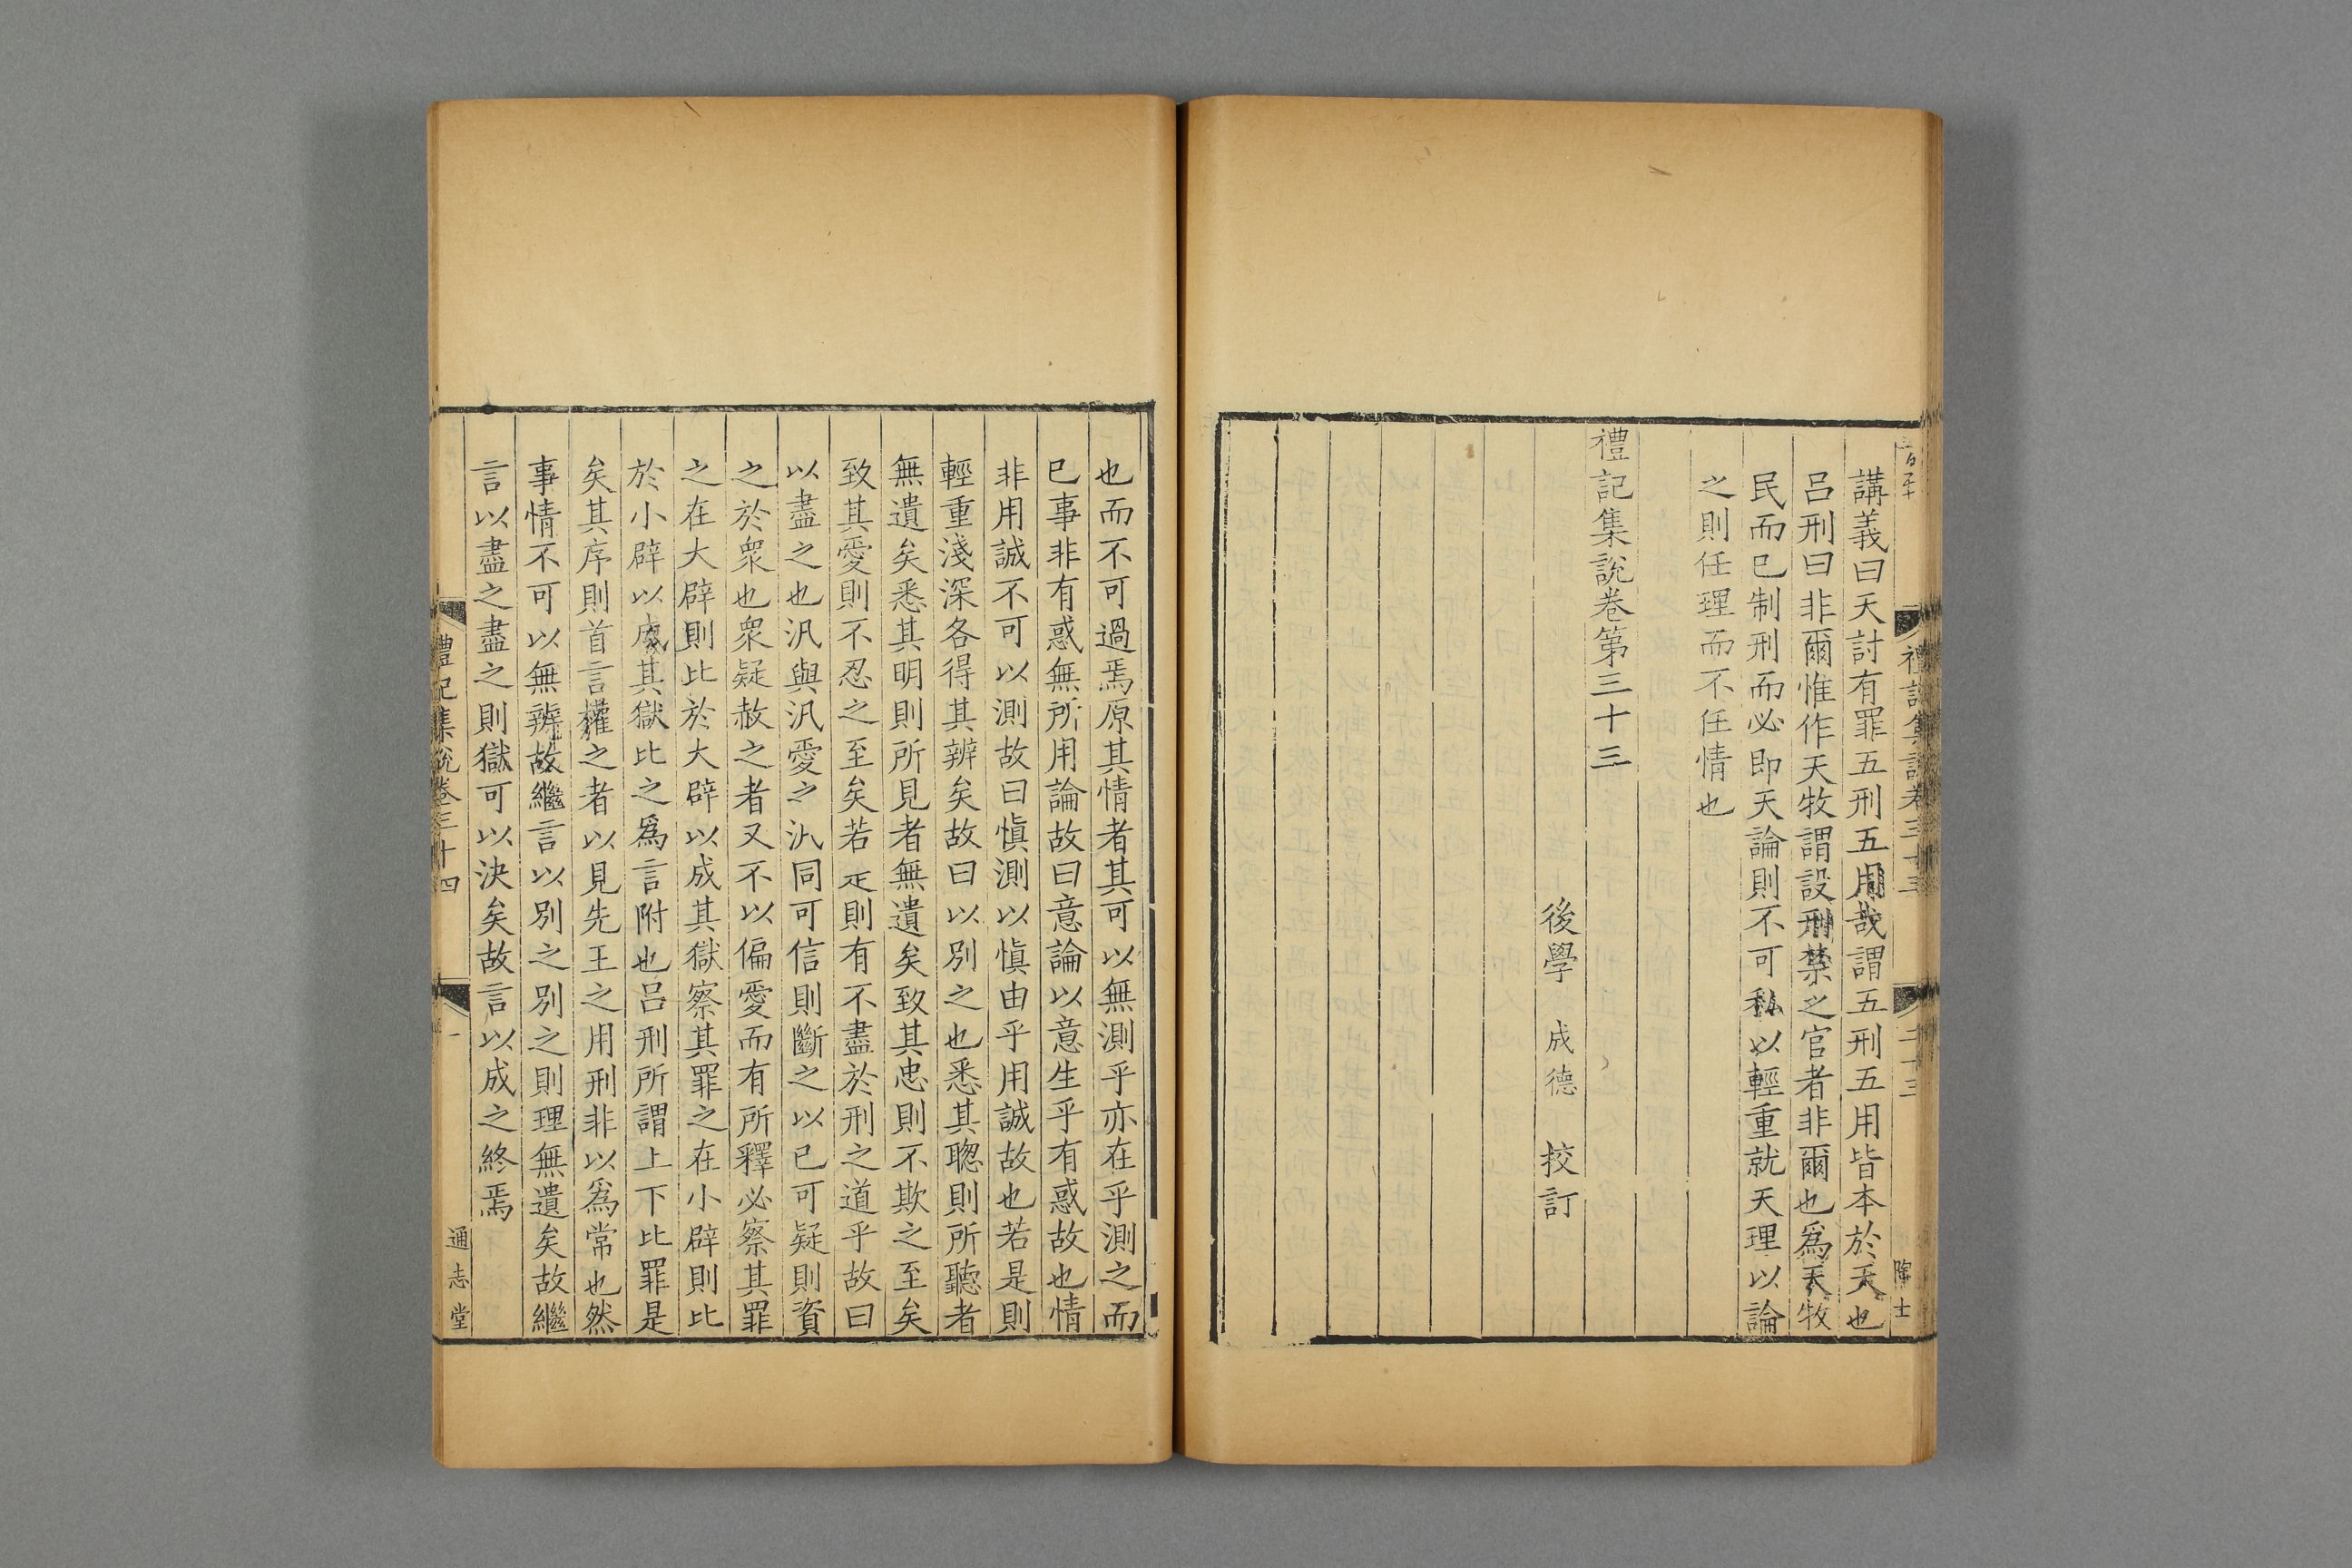 講義曰天討有罪五刑五用哉謂五刑五用皆本於天也
呂刑曰非爾惟作天牧謂設刑禁之官者非爾也爲天牧
民而已制刑而必即天論則不可私以輕重就天理以論
之則任理而不任情也
禮記集說卷第三十三
後學 成德 挍訂
禮記集說卷三十三
二十三
陶士
也而不可過焉原其情者其可以無測乎亦在乎測之而
已事非有惑無所用論故曰意論以意生乎有惑故也情
非用誠不可以測故曰愼測以愼由乎用誠故也若是則
輕重淺深各得其辨矣故曰以別之也悉其聦則所聽者
無遺矣悉其明則所見者無遺矣致其忠則不欺之至矣
致其愛則不忍之至矣若疋則有不盡於刑之道乎故曰
以盡之也汎與汎愛之汎同可信則斷之以已可疑則資
之於衆也衆疑赦之者又不以偏愛而有所釋必察其罪
之在大辟則比於大辟以成其獄察其罪之在小辟則比
於小辟以成其獄比之爲言附也呂刑所謂上下比罪是
矣其序則首言權之者以見先王之用刑非以爲常也然
事情不可以無辨故繼言以別之別之則理無遺矣故繼
言以盡之盡之則獄可以決矣故言以成之終焉
禮記集說卷三十四
一
通志堂